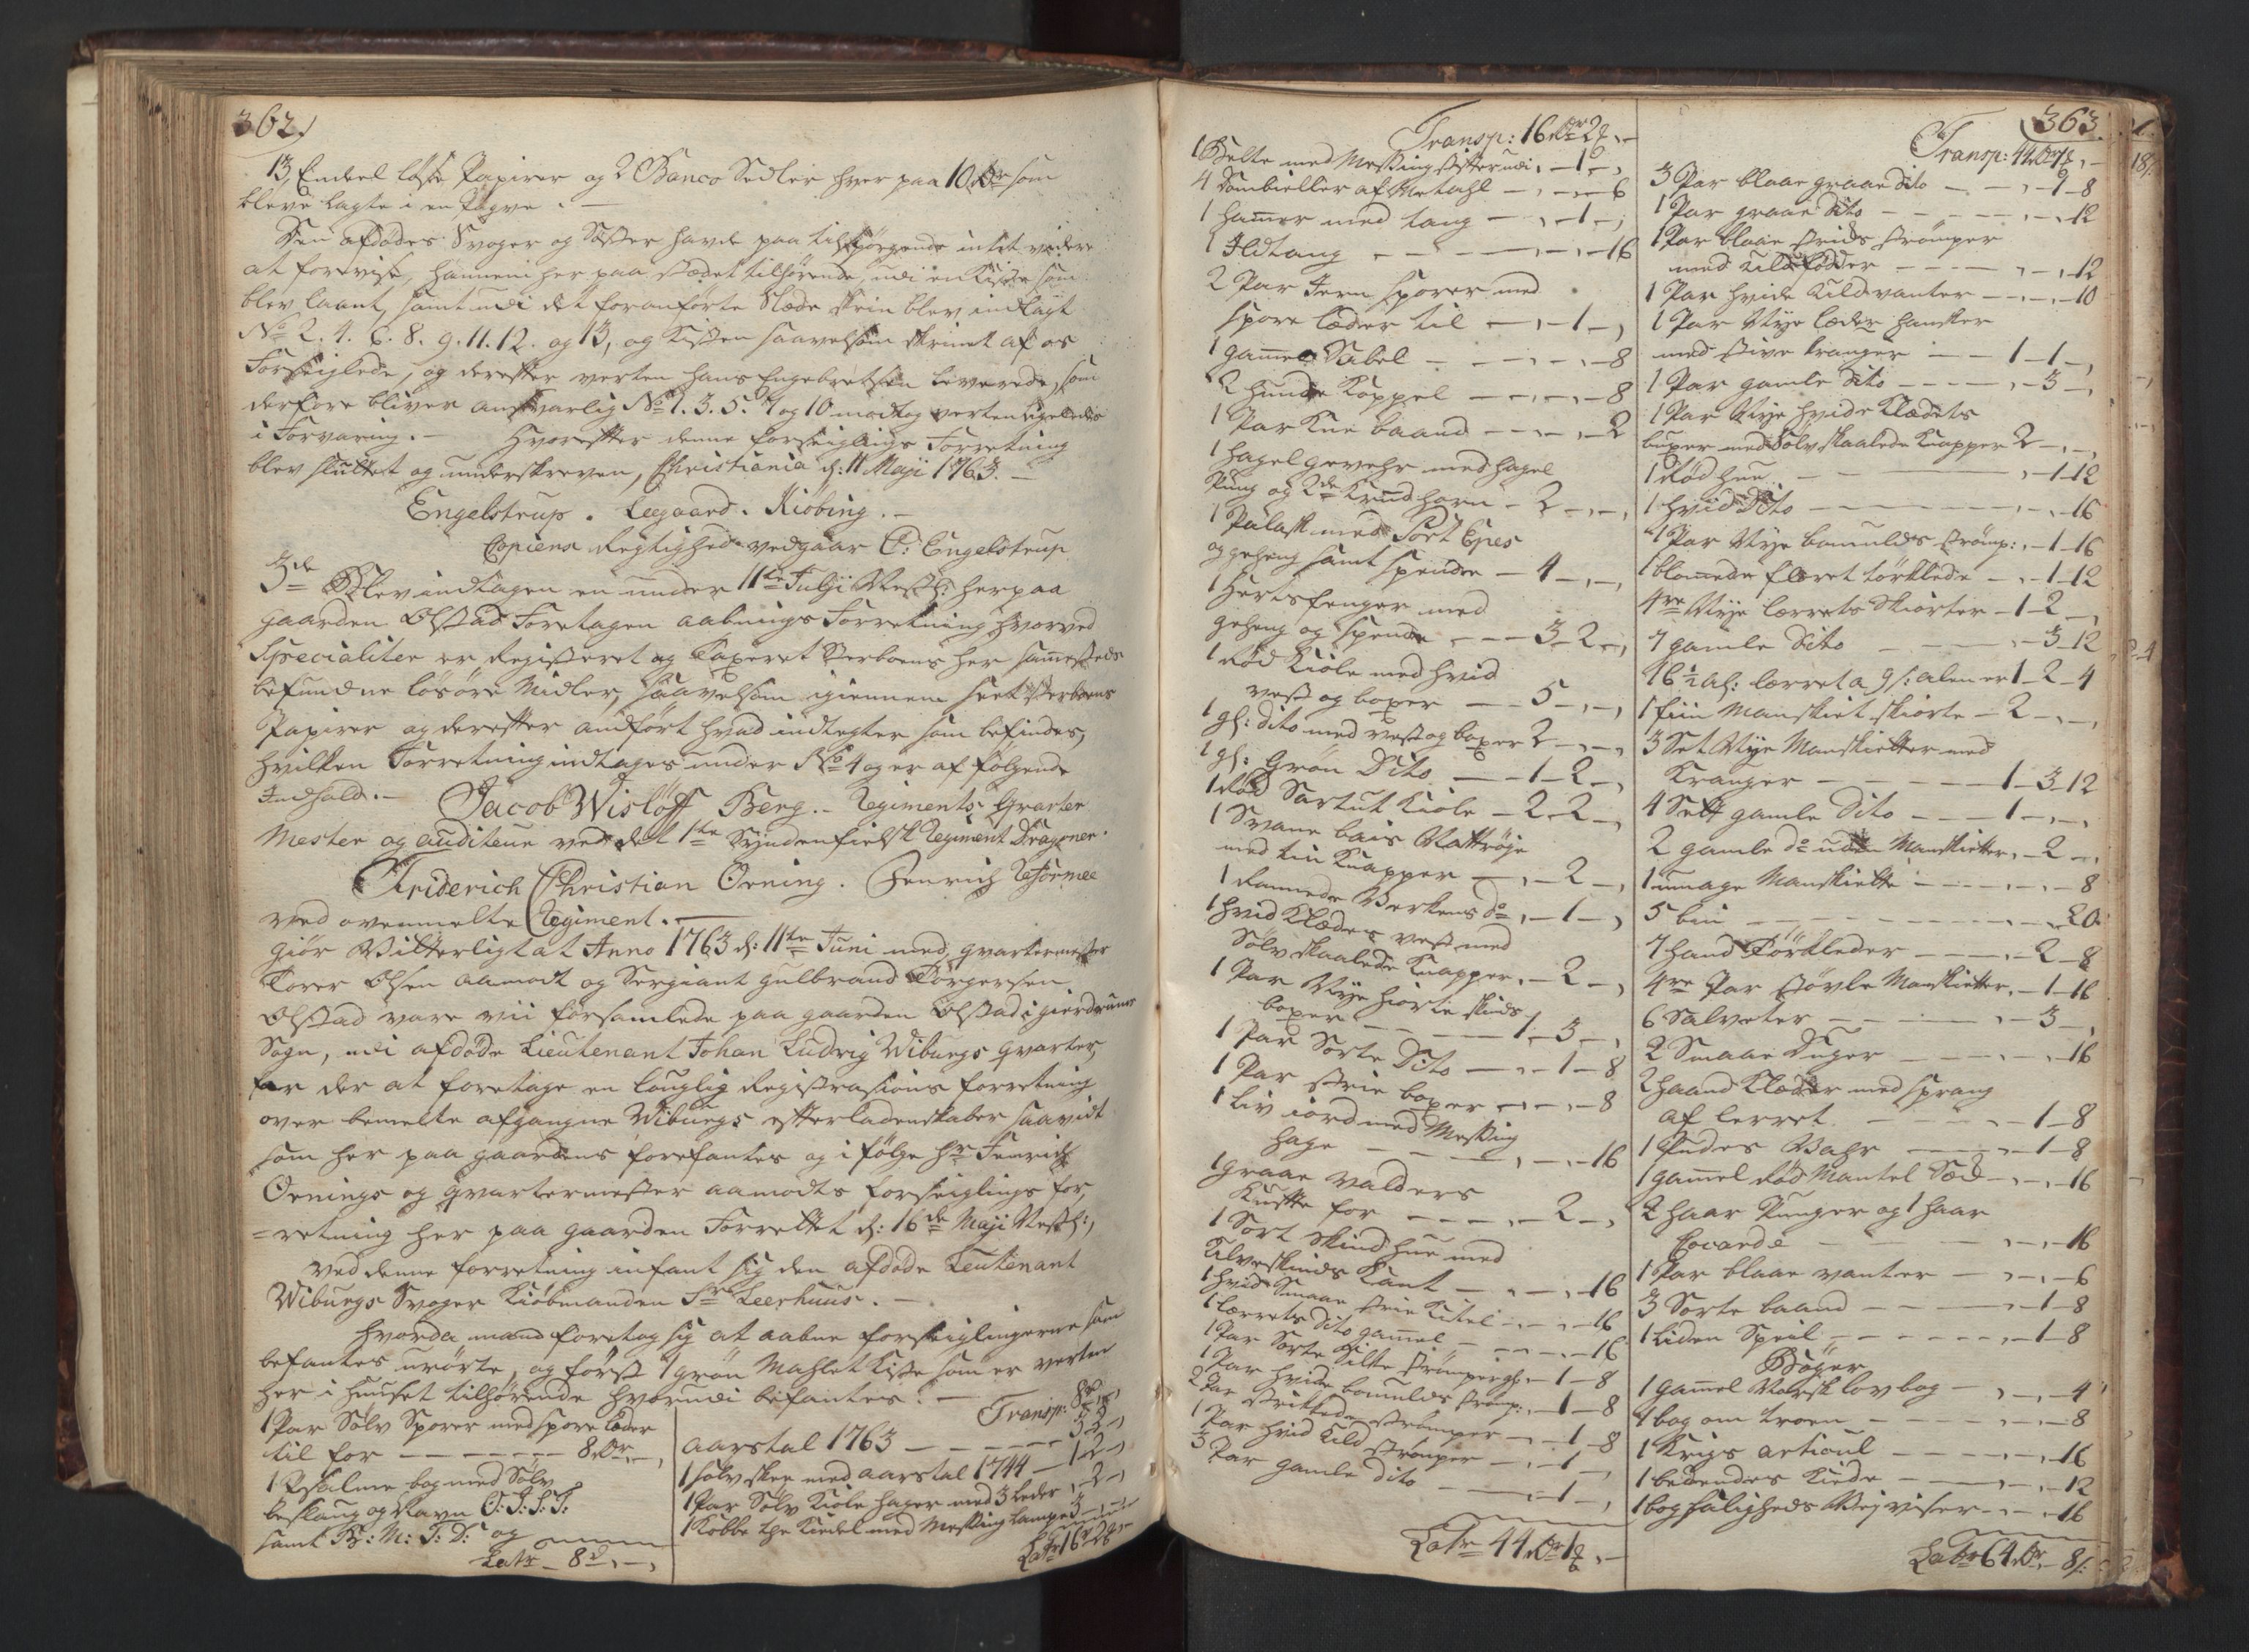 362)
13, Endeel løsse Papirer og 2 Banco Sedler hver paa 10 Rdr som
bleve lagte i en Pagve. –
Den afdødes Svoger og Søster havde paa tilspørgende intet videre
at forevise, hannem her paa stædet tilhørende, udi en Kiste som
blev laant, samt udi det foranførte Slæde skrin blev indlagt
No 2. 4. 6. 8. 9. 11. 12. og 13, og Kisten saavelsom skrinet af os
Forseiglede, og derefter verten Hans Engebretsen leverede, som
derfore bliver ansvarlig No 1. 3. 5. 7 og 10 modtog verten ligeledes
i Forvaring. – Hvorefter denne forseiglings Forretning
blev sluttet og underskreven, Christiania d: 11 Maji 1763. –
Engelstrup. Leegaard. Kiøbing. –
Copiens Rigtighed vedgaar C: Engelstrup
3de Blev indtagen en under 11te Julji Nestl: her paa
gaarden Olstad Foretagen aabnings Forretning hvorved
Specialiter er Registeret og Taxeret Sterboens her sammesteds
befundne løsøre Midler, saavelsom igiennem seet Sterboens
Papirer og derefter anført hvad indtegter som befindes,
hvilken Forretning indtages under No 4 og er af følgende
Indhold. – Jacob Wisløff Berg. – Regiments Qvarteer
Mester og auditeur ved det 1te Syndenfielsk Regiment Dragoner.
Friderich Christian Orning. Fenrich Reformee
ved ovenmelte Regiment. –
Giør Vitterligt at Anno 1763 d: 11te Juni med qvartermester
Torer Olsen Aamodt og Sergiant Gulbrand Törgersen
Olstad vare vii forsamlede paa gaarden Olstad i Gierdrums
Sogn, udi afdøde Lieutenant Johan Ludvig Wiburgs qvarter,
for der at foretage en lovglig Registrasions forretning
over bemelte afgangne Wiburgs efterladenskaber saavidt
som her paa gaardens forefantes og i følge Hr Fenrich
Ornings og qvartermester Aamodts forseiglings for,
=retning her paa gaarden Forrettet d: 16de Maji Nestl:,
ved denne forretning infant sig den afdøde Leutenant
Wiburgs Svoger Kiøbmanden Sr Leerhuus. –
hvorda mand foretog sig at aabne forseiglingerne som
befantes urørte, og først 1 grøn Mahlet Kiste som er verten
her i huuset tilhørende hvorudi befantes. –
1 Par Sølv Sporer med spore læder
til for – – – – 8 Rdr „ – „
1 Psalme bog med Sølv
beslaug og Navn O: I: S: I:
samt B: M: T: D: og
Latr – 8 r „ – „
Transp: 8 r „ – „
aarstal 1763 – – – – 3 2 – „
1 sølv skee med aarstal 1744 – 1 – 2 – „
1 Par Sølv Kiole hager med 3 leder „ – 2 – „
1 Kobbe the Kiedel med Messing lampe 3 – „ – „
Latr 16 r 2 „ –
Transp: 16 Rdr 2 „ –
1 Belte med Messing spenner udi „ – 1 – „
4 Sømbieller af Metahl – „ – „ – 6
1 hammer med tang – „ – 1 – „
1 Ildtang – – – „ – „ – 16
2 Par Jern sporer med
spore læder til – „ – 1 – „
1 gammel Sabel – „ – „ – 8
2 hunde Koppel – „ – „ – 8
1 Par Knæ baand – „ – „ – 2
1 hagel gevehr med hagel
Pung og 2de Krudhorn – 2 – „ – „
1 Palask med Port Epee
og geheng samt spender – 4 – „ – „
1 Hertsfenger med
geheng og spender – – – 3 – 2 – „
1 Rød Kiole med hvid
vest og boxer – – 5 – „ – „
1 gl: dito med vest og boxer 2 – „ – „
1 gl: Grøn Dito – – 1 – 2 – „
1 Rød Sartut Kiole – 2 – 2 – „
1 Svane bais Nattrøje
med tin Knapper – „ – 2 – „
1 Rannede Verkens do „ – 1 – „
1 hvid Klædes vest med
Sølv skaalede Knapper „ – 2 – „
1 Par Nye hiorte skinds
boxer – – – 1 – 3 – „
1 Par Sorte Dito – „ – 1 – 8
1 Par strie boxer – „ – „ – 8
1 Liv iord med Messing
hage – – – „ – „ – 16
1 graae Valders
Kufte for – – – „ – 2 – „
1 Sort skind hue med
Kant – „ – „ – 16
1 hvid Smaae strie Kitel – „ – „ – 16
1 lærrets Dito gammel – „ – „ – 16
1 Par Sorte Silke strømper gl: – 1 – 8
1 Par hvide bomulds strømp: „ – 1 – 8
2 Par strikkede strømper – „ – 1 – 8
1 Par hvid Uld strømper – „ – 1 – „
3 Par gamle dito – „ – 1 – „
Latr 44 Rdr 1 „ –
363
Transp: 44 Rdr 1 „ –
3 Par blaae graae Dito – „ – 1 – 8
1 Par graae Dito – – – „ – „ – 12
1 Par blaae strids strømper
med Uldfödder – – – „ – „ – 12
1 Par hvide Uldvanter – „ – „ – 10
1 Par Nye læder handsker
med stive kranger – – 1 – 1 – „
1 Par gamle Dito – – – „ – 3 – „
1 Par Nye hvide Klædets
buxer med Sølv skaalede Knapper 2 – „ – „
1 Rød hue – „ – 1 – 12
1 hvid Dito – – – „ – „ – 16
1 Par Nye bomulds strømp: „ – 1 – 16
1 blommede floret tørklede – „ – 1 – 12
4re Nye lerrets Skiorter – 1 – 2 – „
7 gamle Dito – „ – 3 – 12
16 1/2 al: lærret a 9 s: alen er 1 – 2 – 4
1 fiin Manskiet skiorte – 2 – „ – „
3 Set Nye Manskietter med
Kranger – – – 1 – 3 – 12
4 Sett gamle Dito – – – 1 – „ – „
2 gamle do uden Manskietter „ – 2 – „
1 umage Manskiette – „ – „ – 8
5 – – – „ – „ – 20
7 hand Törkleder – – – „ – 2 – 8
4re Par støvle Manskietter „ – 1 – 16
6 Salveter – – – „ – 3 – „
2 Smaae Duger – – – „ – „ – 16
2 haand Klæder med sprang
af lerret – – – „ – 1 – 8
1 Pudes Vahr – – „ – 1 – 8
1 gammel Rød Mantel Sæk – „ – „ – 16
2 haar Punger og 1 haar
Cocarde – – – „ – „ – 16
1 Par blaae vanter – „ – „ – 6
3 Sorte baand – – – „ – 1 – 8
1 Liden Speil – – – „ – 1 – 8
Bøger
1 gammel Norsk lov bog – „ – „ – 4
1 bog om troen – – – „ – „ – 8
1 Krigs articul – – – „ – „ – 16
1 bedendes Kiede – „ – „ – 12
1 bog saligheds Veiviser – „ – „ – 16
Latr 64 Rdr „ – 8 s: